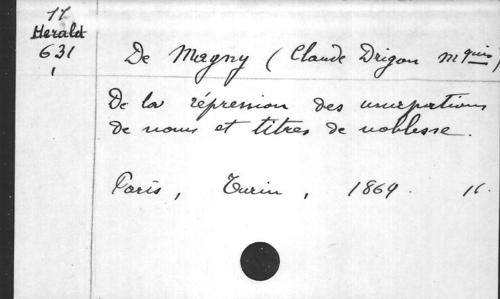 17
Herald
631
1
De Magny (Claude Drigon mquis)
De la répression des usurpations
de noms et titres de noblesse.
Paris, Turin, 1869. 16.